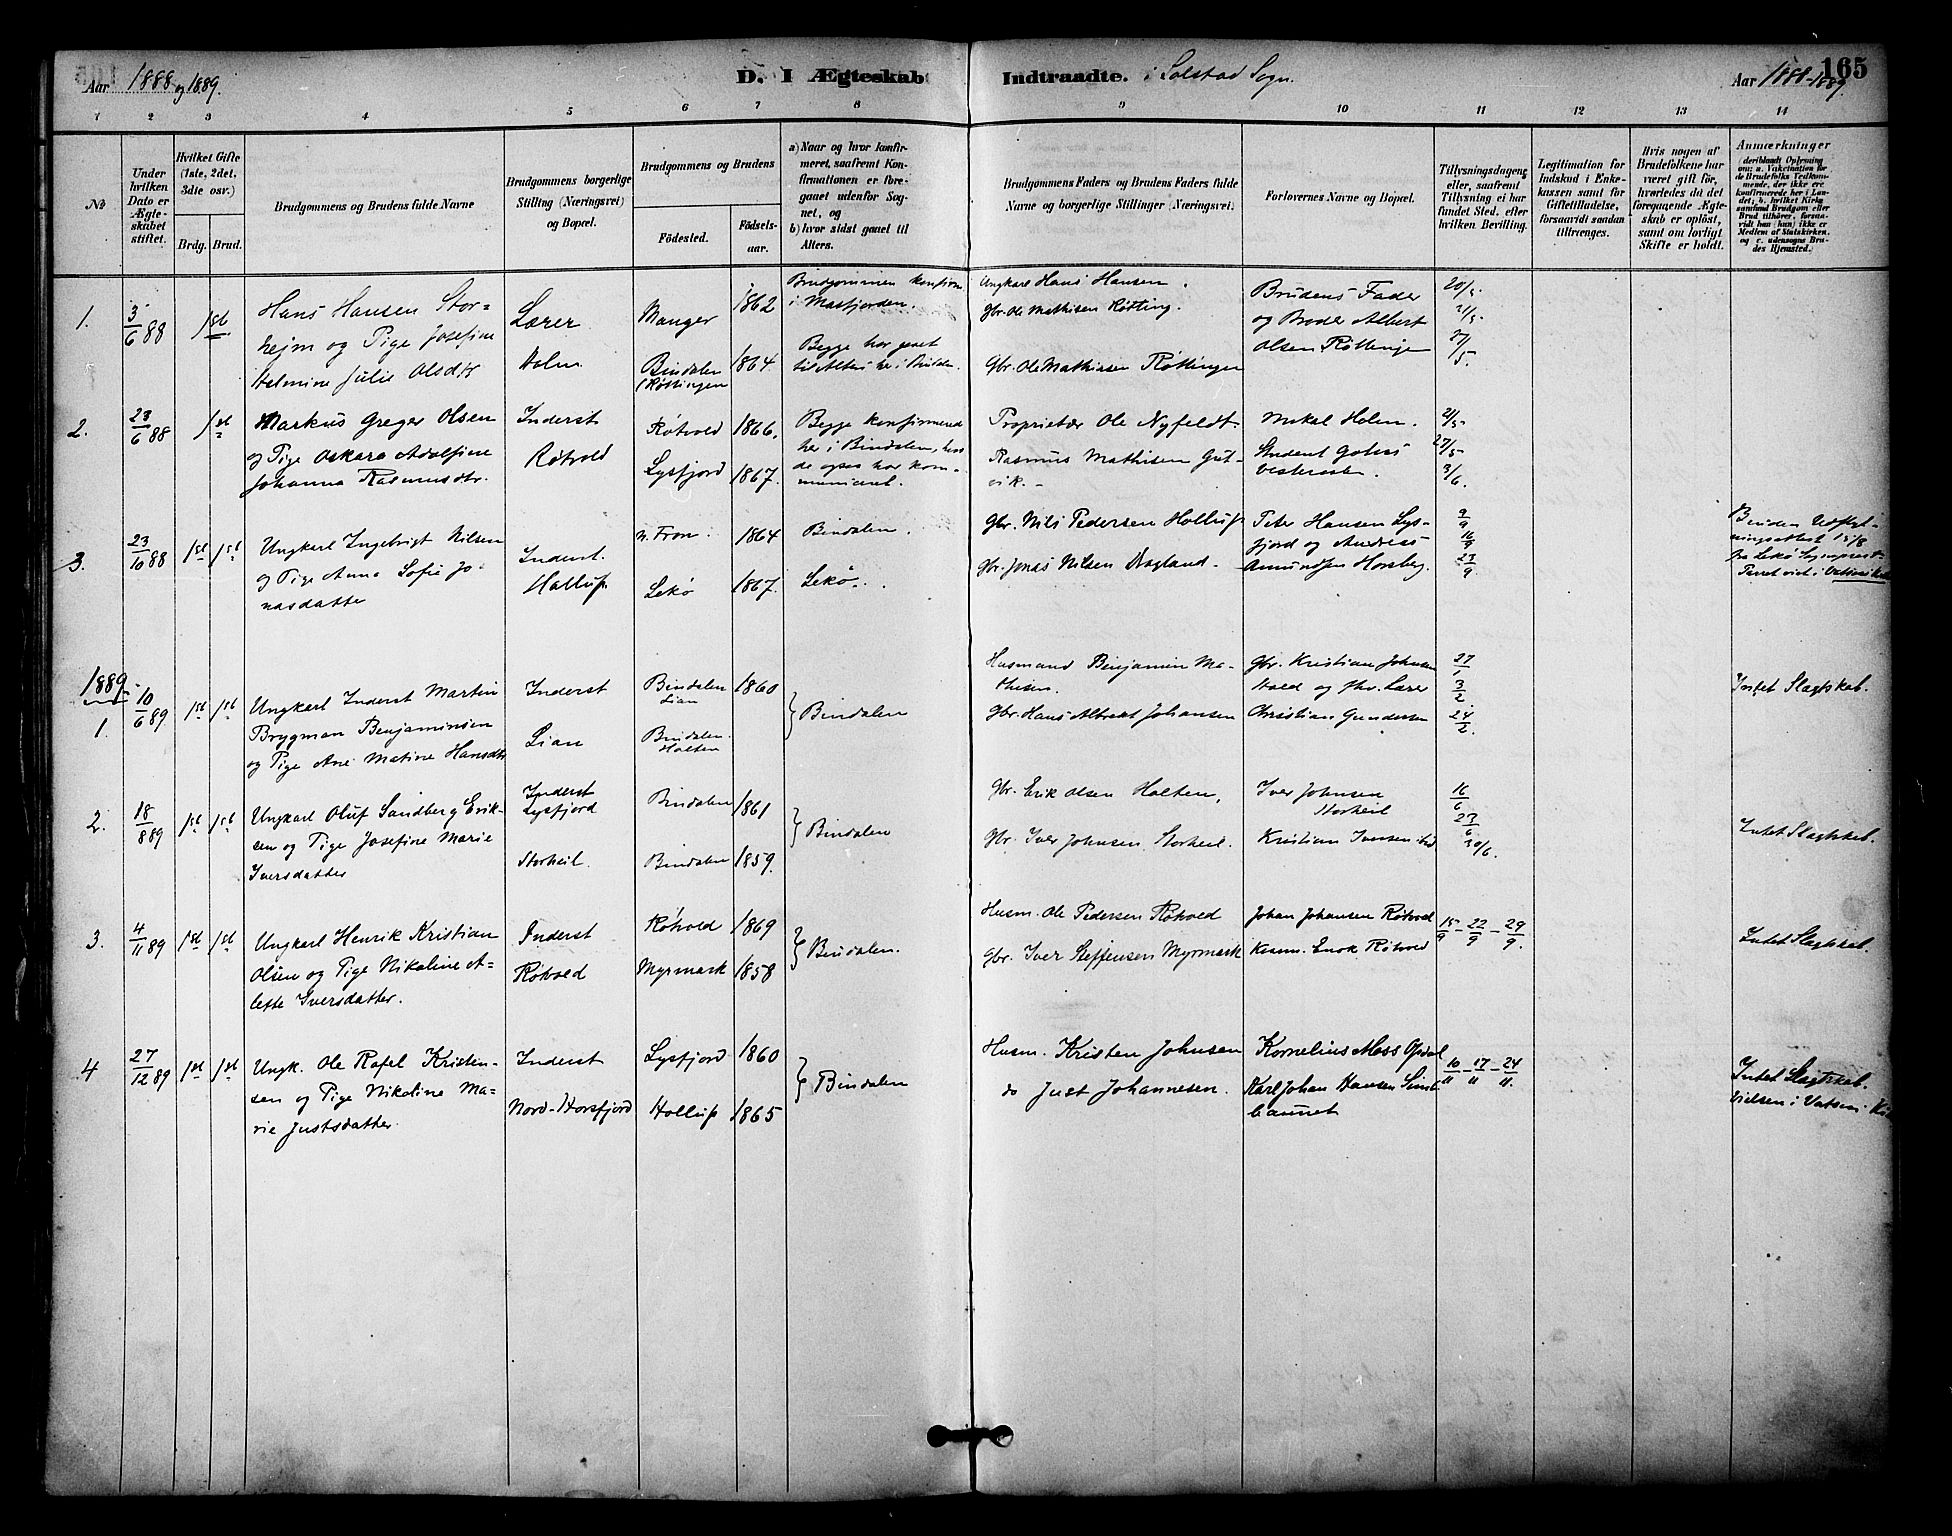 Aar 1888 og 1889.
D. I Ægteskab
Indtraadte. i Solstad Sogn.
Aar 1888-1889
165
1 2 3 4 5 6 7 8 9 10 11 12 13 14
No
Under hvilken Dato er Ægteskabet stiftet.
Hvilket Gifte (1ste, 2det, 3die osv.)
Brdg. Brud.
Brudgommens og Brudens fulde Navne
Brudgommens borgerlige Stilling (Næringsvei) og Bopæl.
Brudgommens og Brudens
Födested.
Födsels-aar.
a) Naar og hvor konfir-
meret, saafremt Kon-
firmationen er fore-
gaaet udenfor Sog-
net, og
b) hvor sidst gaaet til
Alters.
Brudgommens Faders og Brudens Faders fulde
Navne og borgerlige Stillinger (Næringsvei).
Forlovernes Navne og Bopæl.
Tillysningsdagene
eller, saafremt
Tillysning ei har
fundet Sted, efter
hvilken Bevilling.
Legitimation for
Indskud i Enke-
kassen samt for
Giftetilladelse,
forsaavidt saadan
tiltrænges.
Hvis nogen af
Brudefolkene har
været gift för,
hvorledes da det
foregaaende Ægte-
skab er oplöst,
samt om lovligt
Skifte er holdt.
Anmærkninger
(deriblandt Oplysning
om: a. Vakcination for
de Brudefolks Vedkom-
mende, der ikke ere
konfirmerede her i Lan-
det; b. hvilket Kirke-
samfund Brudgom eller
Brud tilhörer, forsaa-
vidt han (hun) ikke er
Medlem af Statskirken.
og c. udensogns Bru-
des Hjemsted.
1. 3/6 88 1st
Hans Hansen Stor-
hejm og Pige Josefine
Helmine Julie Olsdtr
Lærer
Holm
Manger 1862
Bindalen 1864
(Röttingen
Brudgommen konfirm
i Masfjorden.
Begge har gaaet
til Alters her i Bindalen.
Ungkarl Hans Hansen.
Gbr. Ole Mathisen Røtting.
Gbr. Ole Mathiesen Røttingen
Brudens Fader
og Broder Albert
Olsen Röttingen
20/5
21/5
27/5.
2. 23/6 88 1st
Markus Greger Olsen
og Pige Oskara Adolfine
Johanna Rasmusdtr.
Inderst
Røtvold
Røtvold 1866.
Lysfjord 1867.
Begge konfirmered
her i Bindalen, hvor
de ogsaa har kom-
municeret.
Proprietær Ole Nyfeldt.
Rasmus Mathisen Gut-
vik. -
Mikal Holm.
Student
21/5
27/5
3/6.
3. 23/10 88 1st 1st
Ungkarl Ingebrigt Nilsen
og Pige Anna Sofie Jo-
nasdatter
Inderst.
Hallup
n. Fron. 1864
Lekö 1867.
Bindalen.
Lekø.
Gbr. Nils Pedersen Hollup
Gbr. Jonas Nilsen Dagland.
Peter Hansen Lys-
fjord og Andreas
Amundsen Horsberg.
9/9
16/9
23/9
Bruden Udflyt-
ningsattest 15/8
fra Lekö Sogneprest
Parret viet i
1889.
1. 10/6 89 1st 1st
Ungkarl Inderst Martin
Brygman Benjaminsen
og Pige Ane Matine Hansdtr
Inderst
Lian
Bindalen 1860
Lian
Bindalen.
Holten
Bindalen
Husmand Benjamin Ma-
thisen.
Gbr. Hans Albrekt Johansen
Gbr. Kristian Johnsen
Vold og fhv. Lærer
Christian Gundersen
27/1
3/2
24/2.
Intet Slagtskab.
2. 18/8 89 1st 1st
Ungkarl Oluf Sandberg Erik-
sen og Pige Josefine Marie
Iversdatter
Inderst
Lysfjord
Storheil.
Bindalen 1861
Bindalen 1859.
Bindalen
Gbr. Erik Olsen Holten,
Gbr. Iver Johnsen Storheil.
Iver Johnsen
Storheil
Kristian Iversen ibid
16/6
23/6
30/6.
Intet Slagtskab.
3. 4/11 89 1st 1st
Ungkarl Henrik Kristian
Olsen og Pige Nikoline A-
lette Iversdatter.
Inderst
Røtvold
Røtvold 1869
Myrmark 1858
Bindalen.
Husm. Ole Pedersen Røtvold
Gbr. Iver Steffensen Myrmark
Johan Johansen Røtvold
Husm. Enok Røtvold
15/9 - 22/9 - 29/9.
Intet Slagtskab.
4 27/12 89 1st 1st
Ungk. Ole Rafel Kristen-
sen og Pige Nikoline Ma-
rie Justsdatter.
Inderst
Nord-Horsfjord
Lysfjord 1860
Hollup 1865
Bindalen
Husm. Kristen Johnsen
do Just Johannesen.
Kornelius Moss Opdal
Karl Johan Hansen
10/11 - 17/11 - 24/11.
Intet Slagtskab.
Vielsen i Vatsen. Ki